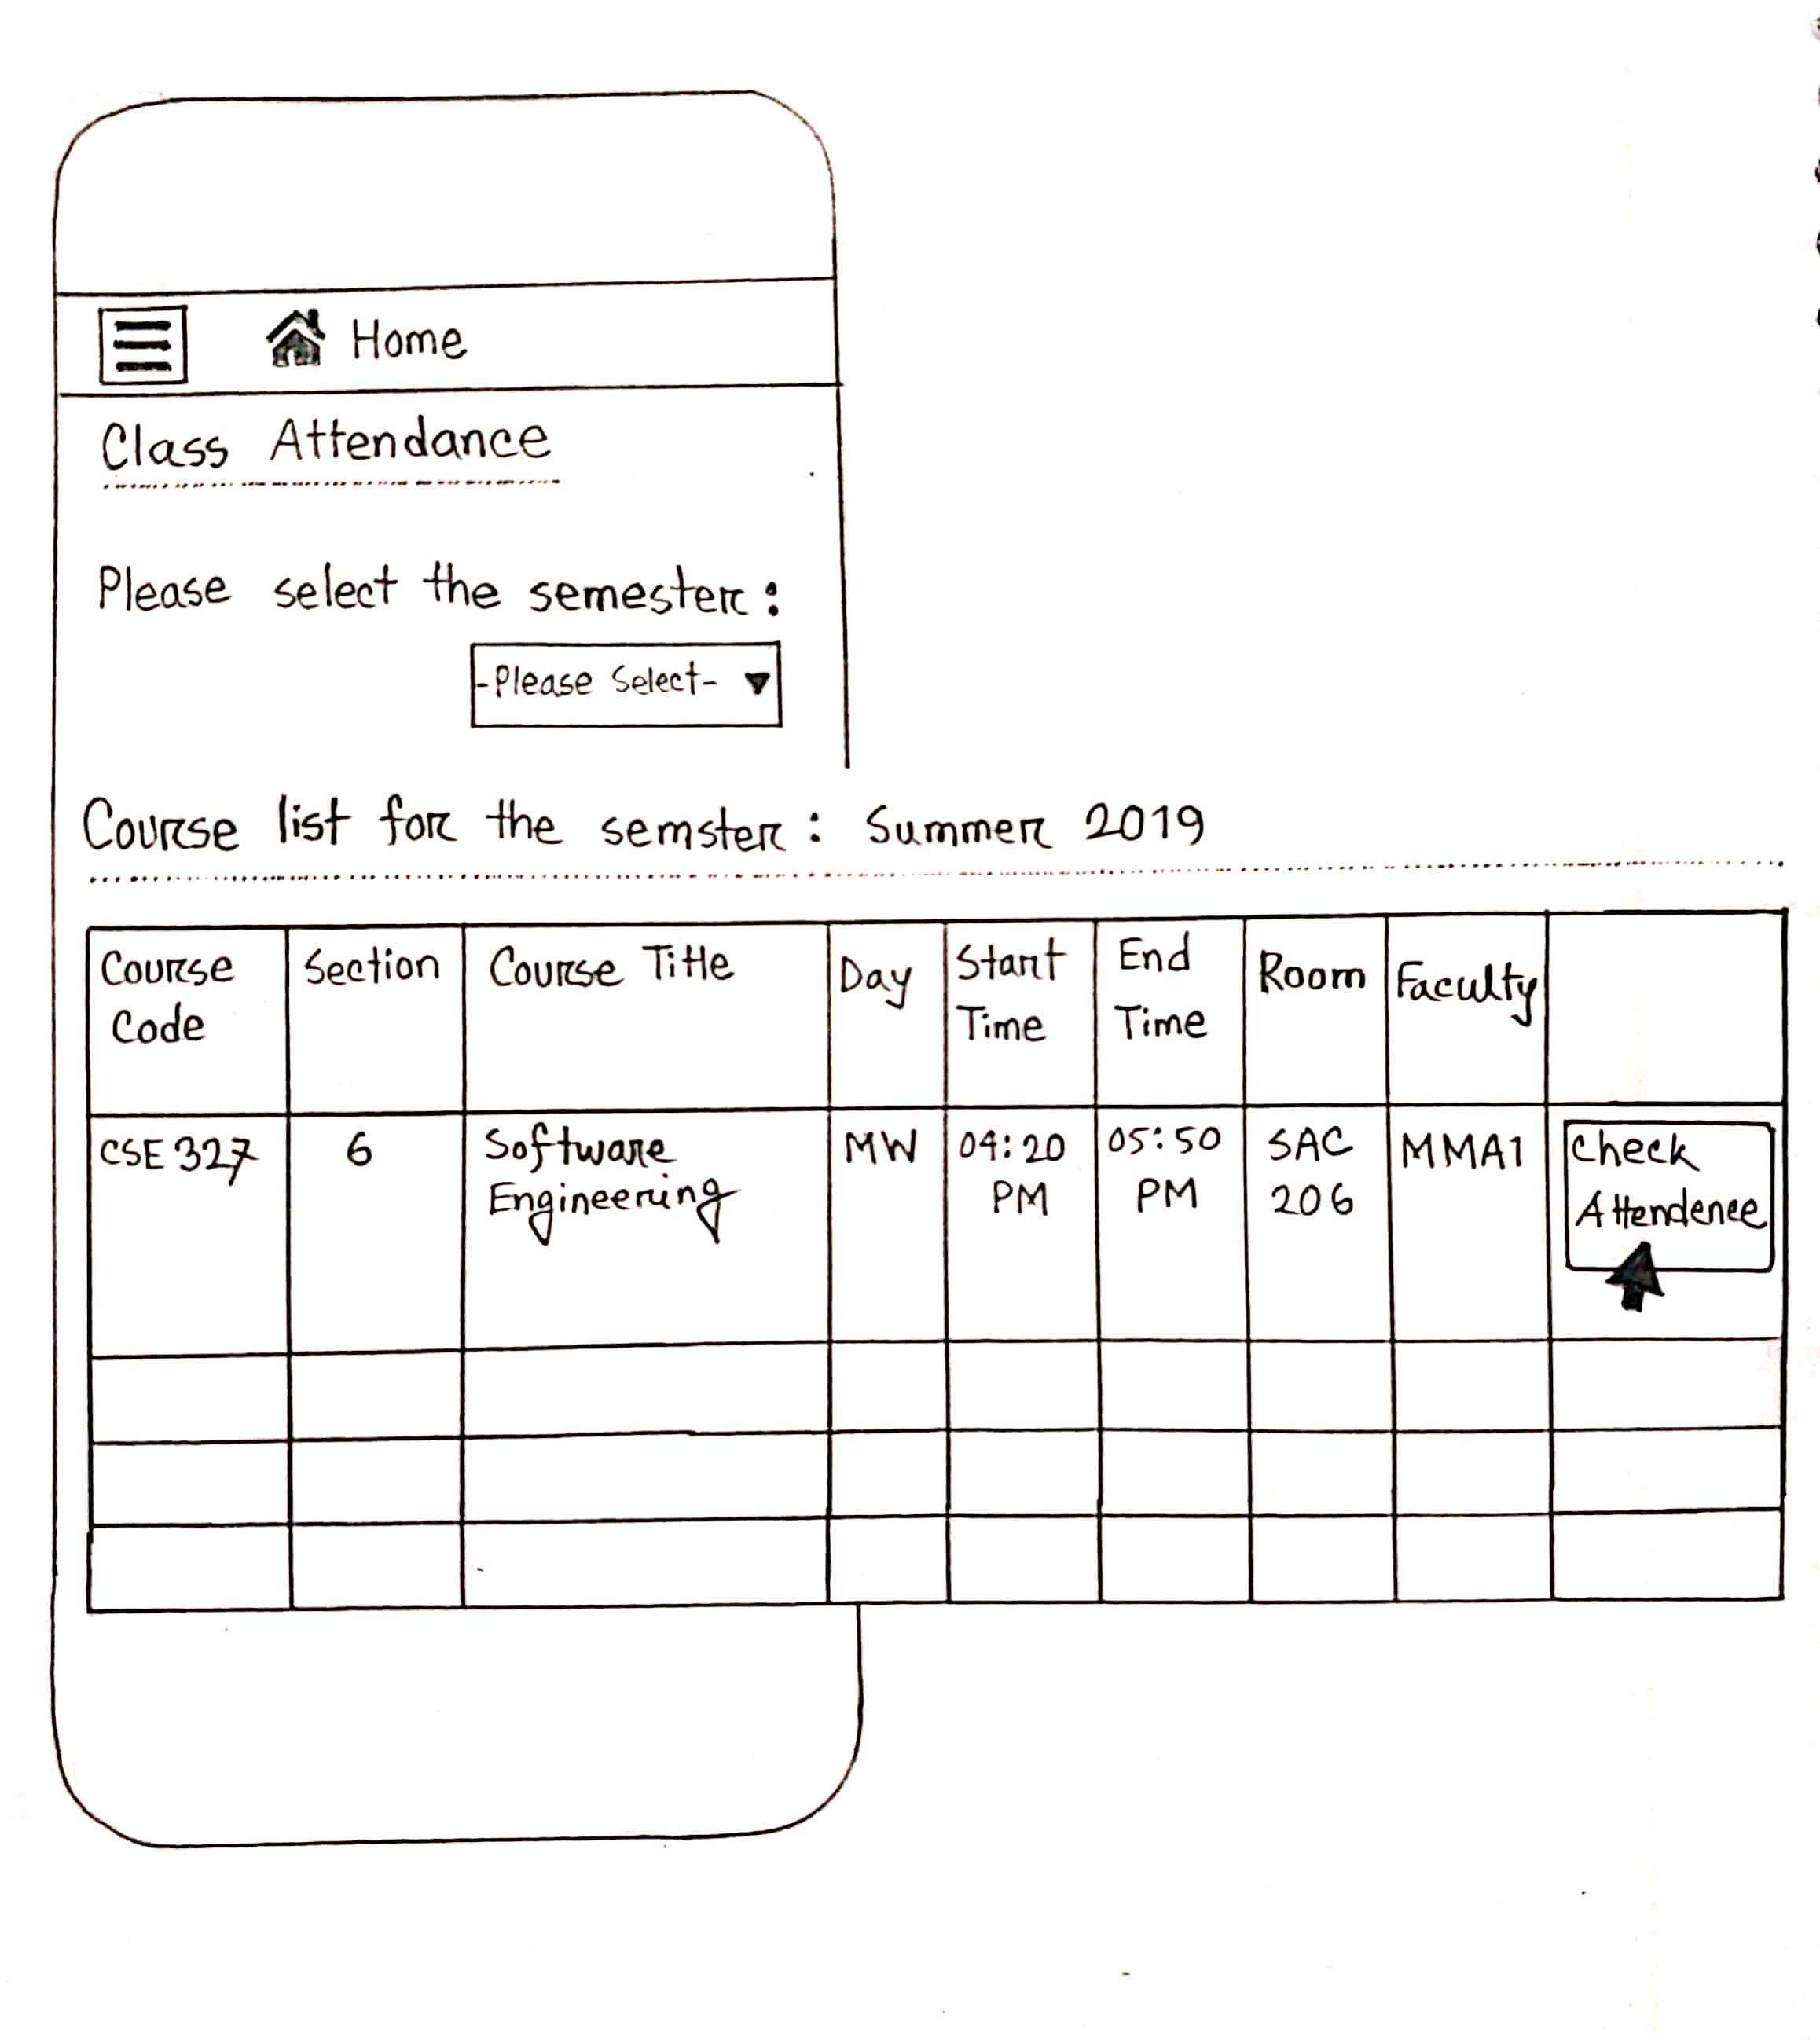 Home
Class Attendance
Please select the semester:
-Please Select-
Course list for the semster: Summer 2019
Course Code Section Course Title Day Start Time End Time Room Faculty
CSE 327 6 Software Engineering MW 04:20 PM 05:50 PM SAC 206 MMA1 Check Attendence